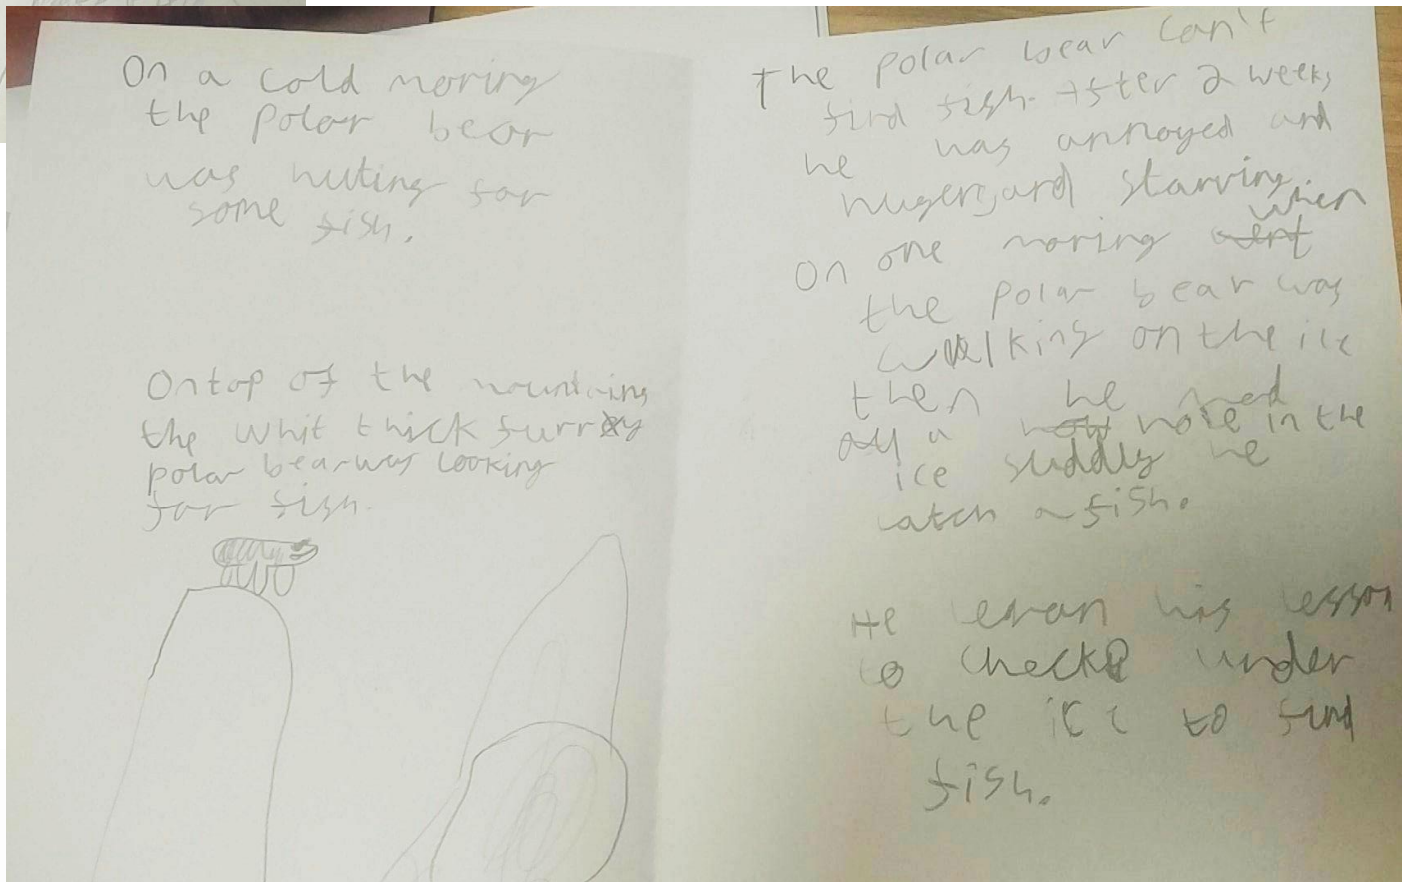 On a cold moring
the polar bear
was huting for
some fish.
On top of the mountains
the whit thick furry
polar bear was looking
for fish.
The polar bear can't
find fish. After 2 weeks
he was annoyed and
hugery and starving.
when
On one moring
the polar bear was
walking on the ice
then he
a hole in the
ice suddly he
catch a fish.
He leran his lesson
to check under
the ice to find
fish.